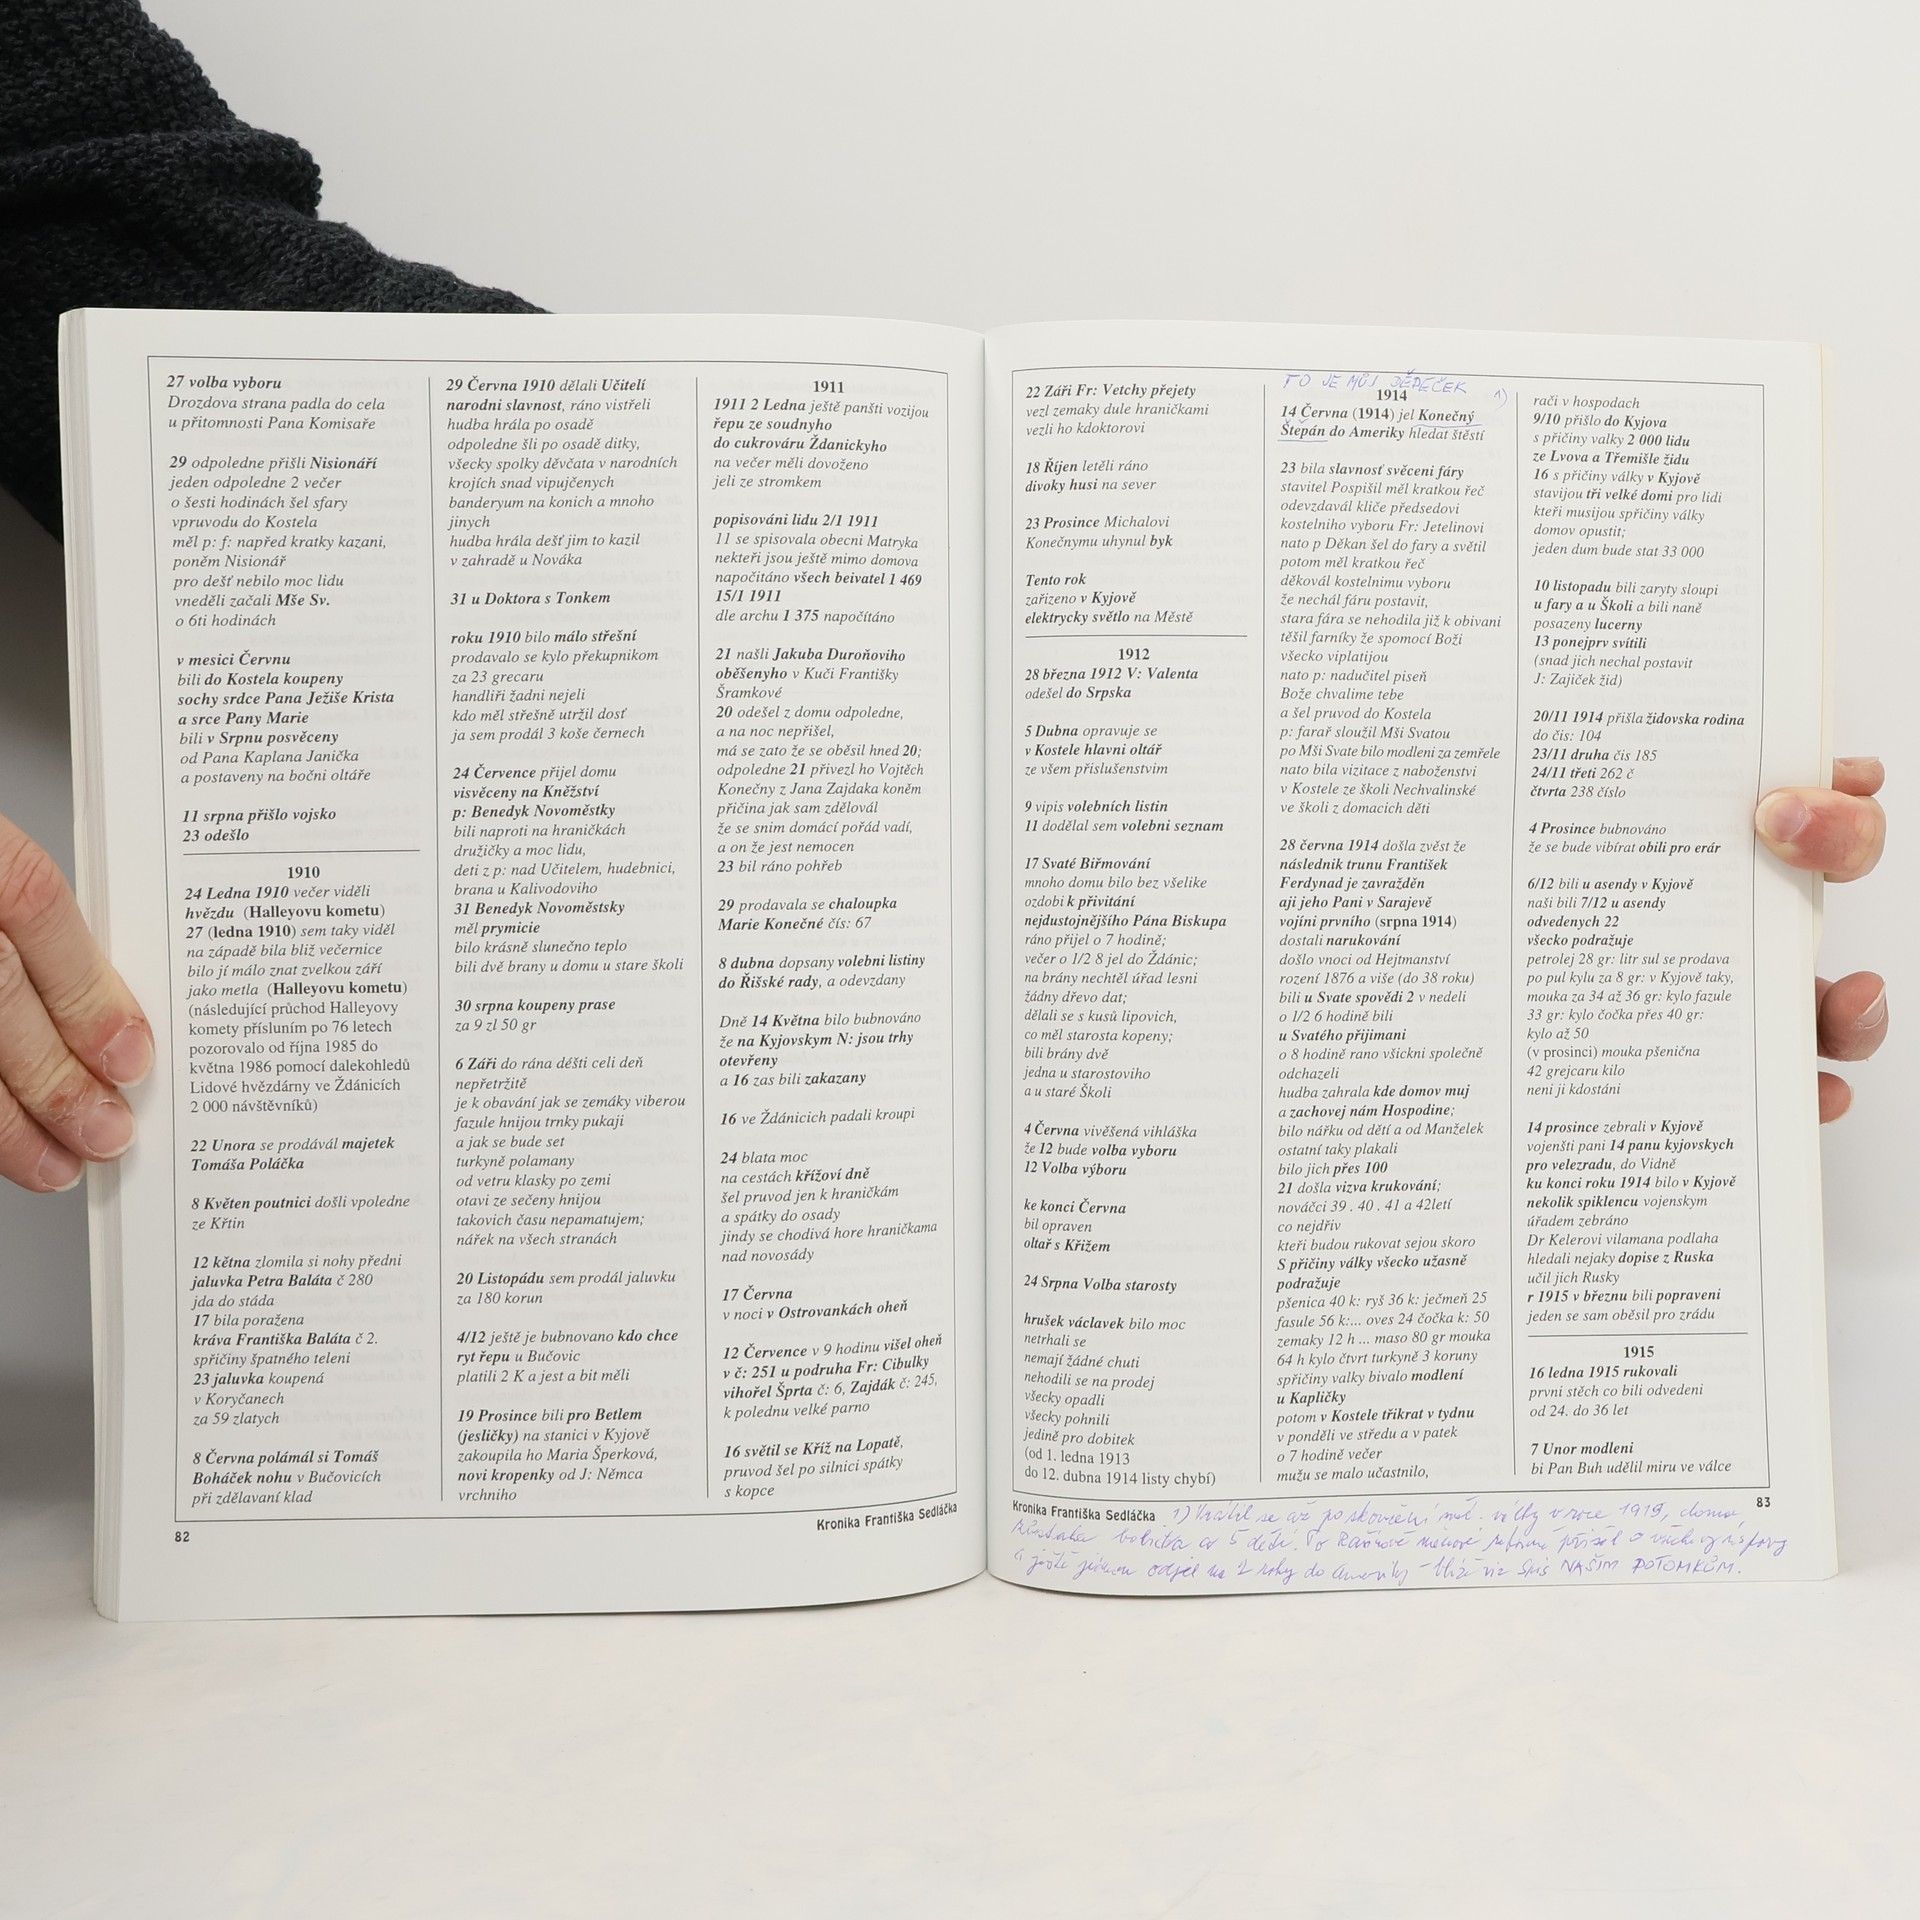 27 volba vyboru
Drozdova strana padla do cela
u přitomnosti Pana Komisaře
29 odpoledne přišli Nisionáři
jeden odpoledne 2 večer
o šesti hodinách šel sfary
vpruvodu do Kostela
měl p: f: napřed kratky kazani,
poněm Nisionář
pro dešť nebilo moc lidu
vneděli začali Mše Sv.
o 6ti hodinách
v mesici Červnu
bili do Kostela koupeny
sochy srdce Pana Ježiše Krista
a srce Pany Marie
bili v Srpnu posvěceny
od Pana Kaplana Janička
a postaveny na bočni oltáře
11 srpna přišlo vojsko
23 odešlo
1910
24 Ledna 1910 večer viděli
hvězdu (Halleyovu kometu)
27 (ledna 1910) sem taky viděl
na západě bila bliž večernice
bilo jí málo znat zvelkou září
jako metla (Halleyovu kometu)
(následující průchod Halleyovy
komety přísluním po 76 letech
pozorovalo od října 1985 do
května 1986 pomocí dalekohledů
Lidové hvězdárny ve Ždánicích
2 000 návštěvníků)
22 Unora se prodávál majetek
Tomáša Poláčka
8 Květen poutnici došli vpoledne
ze Křtin
12 kětna zlomila si nohy předni
jaluvka Petra Baláta č 280
jda do stáda
17 bila poražena
kráva Františka Baláta č 2.
spřičiny špatného teleni
23 jaluvka koupená
v Koryčanech
za 59 zlatych
8 Června polámál si Tomáš
Boháček nohu v Bučovicích
při zdělavaní klad
82
29 Června 1910 dělali Učitelí
narodni slavnost, ráno vistřeli
hudba hrála po osadě
odpoledne šli po osadě ditky,
všecky spolky děvčata v narodních
krojích snad vipujčených
banderyum na konich a mnoho
jinych
hudba hrála dešť jim to kazil
v zahradě u Nováka
31 u Doktora s Tonkem
roku 1910 bilo málo střešní
prodavalo se kylo překupnikom
za 23 grecaru
handliři žadni nejeli
kdo měl střešně utržil dosť
ja sem prodál 3 koše černech
24 Července přijel domu
visvěceny na Kněžství
p: Benedyk Novoměstky
bili naproti na hraničkách
družičky a moc lidu,
deti z p: nad Učitelem, hudebnici,
brana u Kalivodoviho
31 Benedyk Novoměstsky
měl prymicie
bilo krásně slunečno teplo
bili dvě brany u domu u stare školi
30 srpna koupeny prase
za 9 zl 50 gr
6 Záři do rána déšti celi deň
nepřetržitě
je k obavání jak se zemáky viberou
fazule hnijou trnky pukaji
a jak se bude set
turkyně polamany
od vetru klasky po zemi
otavi ze sečeny hnijou
takovich času nepamatujem;
nářek na všech stranách
20 Listopádu sem prodál jaluvku
za 180 korun
4/12 ještě je bubnovano kdo chce
ryt řepu u Bučovic
platili 2 K a jest a bit měli
19 Prosince bili pro Betlem
(jesličky) na stanici v Kyjově
zakoupila ho Maria Šperková,
novi kropenky od J: Němca
vrchniho
1911
1911 2 Ledna ještě panšti vozijou
řepu ze soudnyho
do cukrováru Ždanickyho
na večer měli dovoženo
jeli ze stromkem
popisováni lidu 2/1 1911
11 se spisovala obecni Matryka
nekteři jsou ještě mimo domova
napočitáno všech beivatel 1 469
15/1 1911
dle archu 1 375 napočítáno
21 našli Jakuba Duroňoviho
oběšenyho v Kuči Františky
Šramkové
20 odešel z domu odpoledne,
a na noc nepřišel,
má se zato že se oběsil hned 20;
odpoledne 21 přivezl ho Vojtěch
Konečny z Jana Zajdaka koněm
přičina jak sam zdělovál
že se snim domácí pořád vadí,
a on že jest nemocen
23 bil ráno pohřeb
29 prodavala se chaloupka
Marie Konečné čís: 67
8 dubna dopsany volebni listiny
do Řišské rady, a odevzdany
Dně 14 Května bilo bubnováno
že na Kyjovskym N: jsou trhy
otevřeny
a 16 zas bili zakazany
16 ve Ždánicich padali kroupi
24 blata moc
na cestách křížoví dně
šel pruvod jen k hraničkám
a spátky do osady
jindy se chodivá hore hraničkama
nad novosády
17 Června
v noci v Ostrovankách oheň
12 Července v 9 hodinu višel oheň
v č: 251 u podruha Fr: Cibulky
vihořel Šprta č: 6, Zajdák č: 245,
k polednu velké parno
16 světil se Kříž na Lopatě,
pruvod šel po silnici spátky
s kopce
Kronika Františka Sedláčka
22 Záři Fr: Vetchy přejety
vezl zemaky dule hraničkami
vezli ho kdoktorovi
18 Říjen letěli ráno
divoky husi na sever
23 Prosince Michalovi
Konečnymu uhynul byk
Tento rok
zařizeno v Kyjově
elektrycky světlo na Městě
1912
28 března 1912 V: Valenta
odešel do Srpska
5 Dubna opravuje se
v Kostele hlavni oltář
ze všem příslušenstvim
9 vipis volebních listin
11 dodělal sem volebni seznam
17 Svaté Biřmování
mnoho domu bilo bez všelike
ozdobi k přivitání
nejdustojnějšího Pána Biskupa
ráno přijel o 7 hodině;
večer o 1/2 8 jel do Ždánic;
na brány nechtěl úřad lesni
žádny dřevo dat;
dělali se s kusů lipovich,
co měl starosta kopeny;
bili brány dvě
jedna u starostoviho
a u staré Školi
4 Června vivěšená vihláška
že 12 bude volba vyboru
12 Volba výboru
ke konci Června
bil opraven
oltař s Křížem
24 Srpna Volba starosty
hrušek václavek bilo moc
netrhali se
nemají žádné chuti
nehodili se na prodej
všecky opadli
všecky pohnili
jedině pro dobitek
(od 1. ledna 1913
do 12. dubna 1914 listy chybí)
TO JE MŮJ DĚDEČEK 1)
1914
14 Června (1914) jel Konečný
Štepán do Ameriky hledat štěstí
23 bila slavnosť svěceni fáry
stavitel Pospišil měl kratkou řeč
odevzdavál kliče předsedovi
kostelniho vyboru Fr: Jetelinovi
nato p Děkan šel do fary a světil
potom měl kratkou řeč
děkovál kostelnimu vyboru
že nechál fáru postavit,
stara fára se nehodila již k obivani
těšil farníky že spomocí Boži
všecko viplatijou
nato p: nadučitel piseň
Bože chvalime tebe
a šel pruvod do Kostela
p: farař sloužil Mši Svatou
po Mši Svate bilo modleni za zemřele
nato bila vizitace z naboženstvi
v Kostele ze školi Nechvalinské
ve školi z domacich děti
28 června 1914 došla zvěst že
následnik trunu František
Ferdynad je zavražděn
aji jeho Pani v Sarajevě
vojíni prvního (srpna 1914)
dostali narukování
došlo vnoci od Hejtmanství
rození 1876 a více (do 38 roku)
bili u Svate spovědi 2 v nedeli
o 1/2 6 hodině bili
u Svatého přijimani
o 8 hodině rano všickni společně
odchazeli
hudba zahrala kde domov muj
a zachovej nám Hospodine;
bilo nářku od dětí a od Manželek
ostatni taky plakali
bilo jich přes 100
21 došla vizva krukování;
nováčci 39 . 40 . 41 a 42letí
co nejdřiv
kteři budou rukovat sejou skoro
S přičiny války všecko užasně
podražuje
pšenica 40 k: ryš 36 k: ječmeň 25
fasule 56 k:... oves 24 čočka k: 50
zemaky 12 h ... maso 80 gr mouka
64 h kylo čtvrt turkyně 3 koruny
spřičiny valky bivalo modlení
u Kapličky
potom v Kostele třikrat v tydnu
v ponděli ve středu a v patek
o 7 hodině večer
mužu se malo učastnilo,
rači v hospodach
9/10 přišlo do Kyjova
s přičiny valky 2 000 lidu
ze Lvova a Třemišle židu
16 s přičiny války v Kyjově
stavijou tři velké domi pro lidi
kteři musijou spřičiny války
domov opustit;
jeden dum bude stat 33 000
10 listopadu bili zaryty sloupi
u fary a u Školi a bili naně
posazeny lucerny
13 ponejprv svítili
(snad jich nechal postavit
J: Zajiček žid)
20/11 1914 přišla židovska rodina
do čis: 104
23/11 druha čis 185
24/11 třeti 262 č
čtvrta 238 číslo
4 Prosince bubnováno
že se bude vibírat obili pro erár
6/12 bili u asendy v Kyjově
naši bili 7/12 u asendy
odvedenych 22
všecko podražuje
petrolej 28 gr: litr sul se prodava
po pul kylu za 8 gr: v Kyjově taky,
mouka za 34 až 36 gr: kylo fazule
33 gr: kylo čočka přes 40 gr:
kylo až 50
(v prosinci) mouka pšenična
42 grejcaru kilo
neni ji kdostáni
14 prosince zebrali v Kyjově
vojenšti pani 14 panu kyjovskych
pro velezradu, do Vidně
ku konci roku 1914 bilo v Kyjově
nekolik spiklencu vojenskym
úřadem zebráno
Dr Kelerovi vilamana podlaha
hledali nejaky dopise z Ruska
učil jich Rusky
r 1915 v březnu bili popraveni
jeden se sam oběsil pro zrádu
1915
16 ledna 1915 rukovali
první stěch co bili odvedeni
od 24. do 36 let
7 Unor modleni
bi Pan Buh udělil miru ve válce
Kronika Františka Sedláčka
83
1) Vrátil se až po skončení svět. války v roce 1919, doma
zůstala babička a 5 dětí. Po Rašínově měnové reformě přišel o všechny úspory
a ještě jednou odjel na 2 roky do Ameriky - blíže viz spis NAŠIM POTOMKŮM.